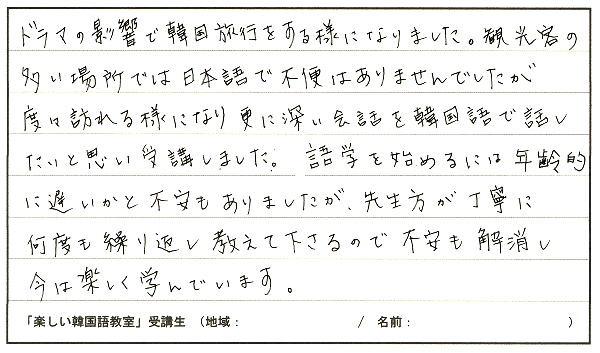 ドラマの影響で韓国旅行をする様になりました。観光客の
多い場所では日本語で不便はありませんでしたが
度々訪れる様になり更に深い会話を韓国語で話し
たいと思い受講しました。 語学を始めるには年齢的
に遅いかと不安もありましたが、先生方が丁寧に
何度も繰り返し教えて下さるので不安も解消し
今は楽しく学んでいます。
「楽しい韓国語教室」受講生 （地域： / 名前： ）